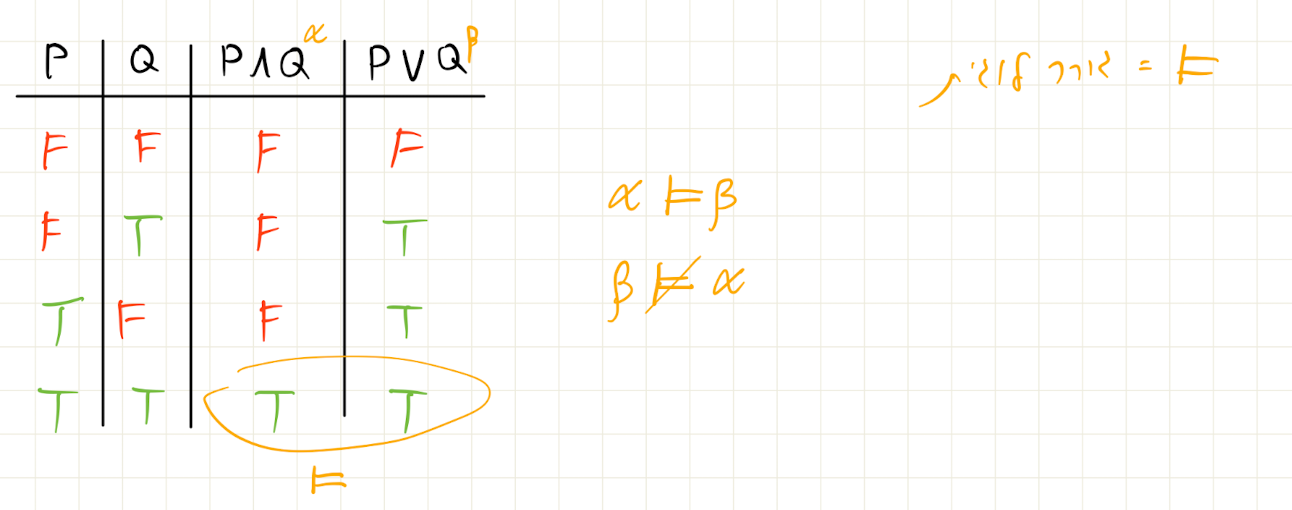 P Q P∧Q α P∨Q β
F F F F
F T F T
T F F T
T T T T
⊨
⊨ = גורר לוגית
α ⊨ β
β ⊭ α